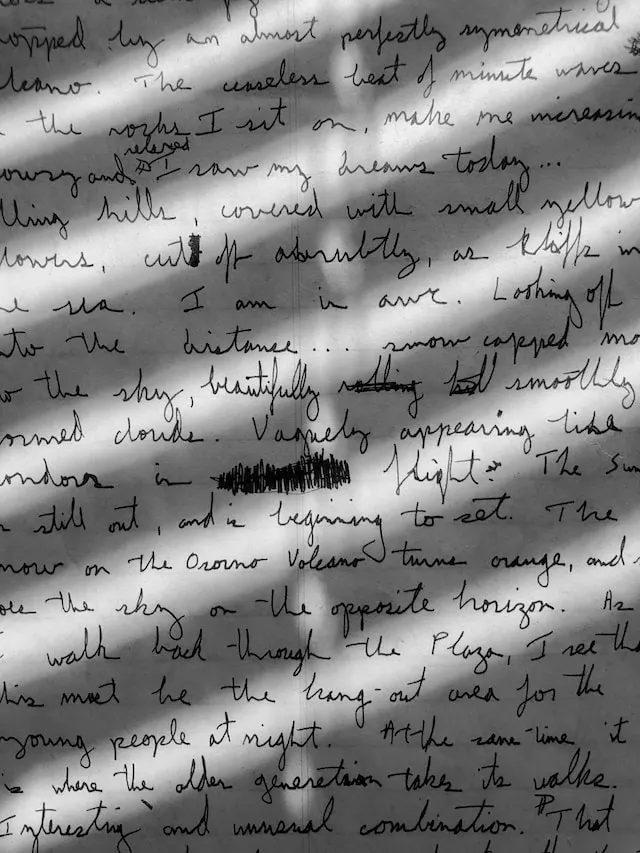 topped by an almost perfectly symmetrical
lcano. The ceaseless beat of minute waves
the rocks I sit on, make me increasin
relaxed
owsy and I saw my dreams today...
lling hills, covered with small yellow
lowers, cut off abrubtly, as kliffs in
he sea. I am in awe. Looking off
nto the distance... snow capped mo
o the sky, beautifully rolling smoothly
ormed clouds. Vaguely appearing like
ondors in flight. The Sun
still out, and is beginning to set. The
now on the Osorno Volcano turns orange, and
oes the sky on the opposite horizon. As
I walk back through the Plaza, I see tha
his must be the hang-out area for the
young people at night. At the same time it
is where the older generetaion takes its walks.
Interesting and unusual combination. That